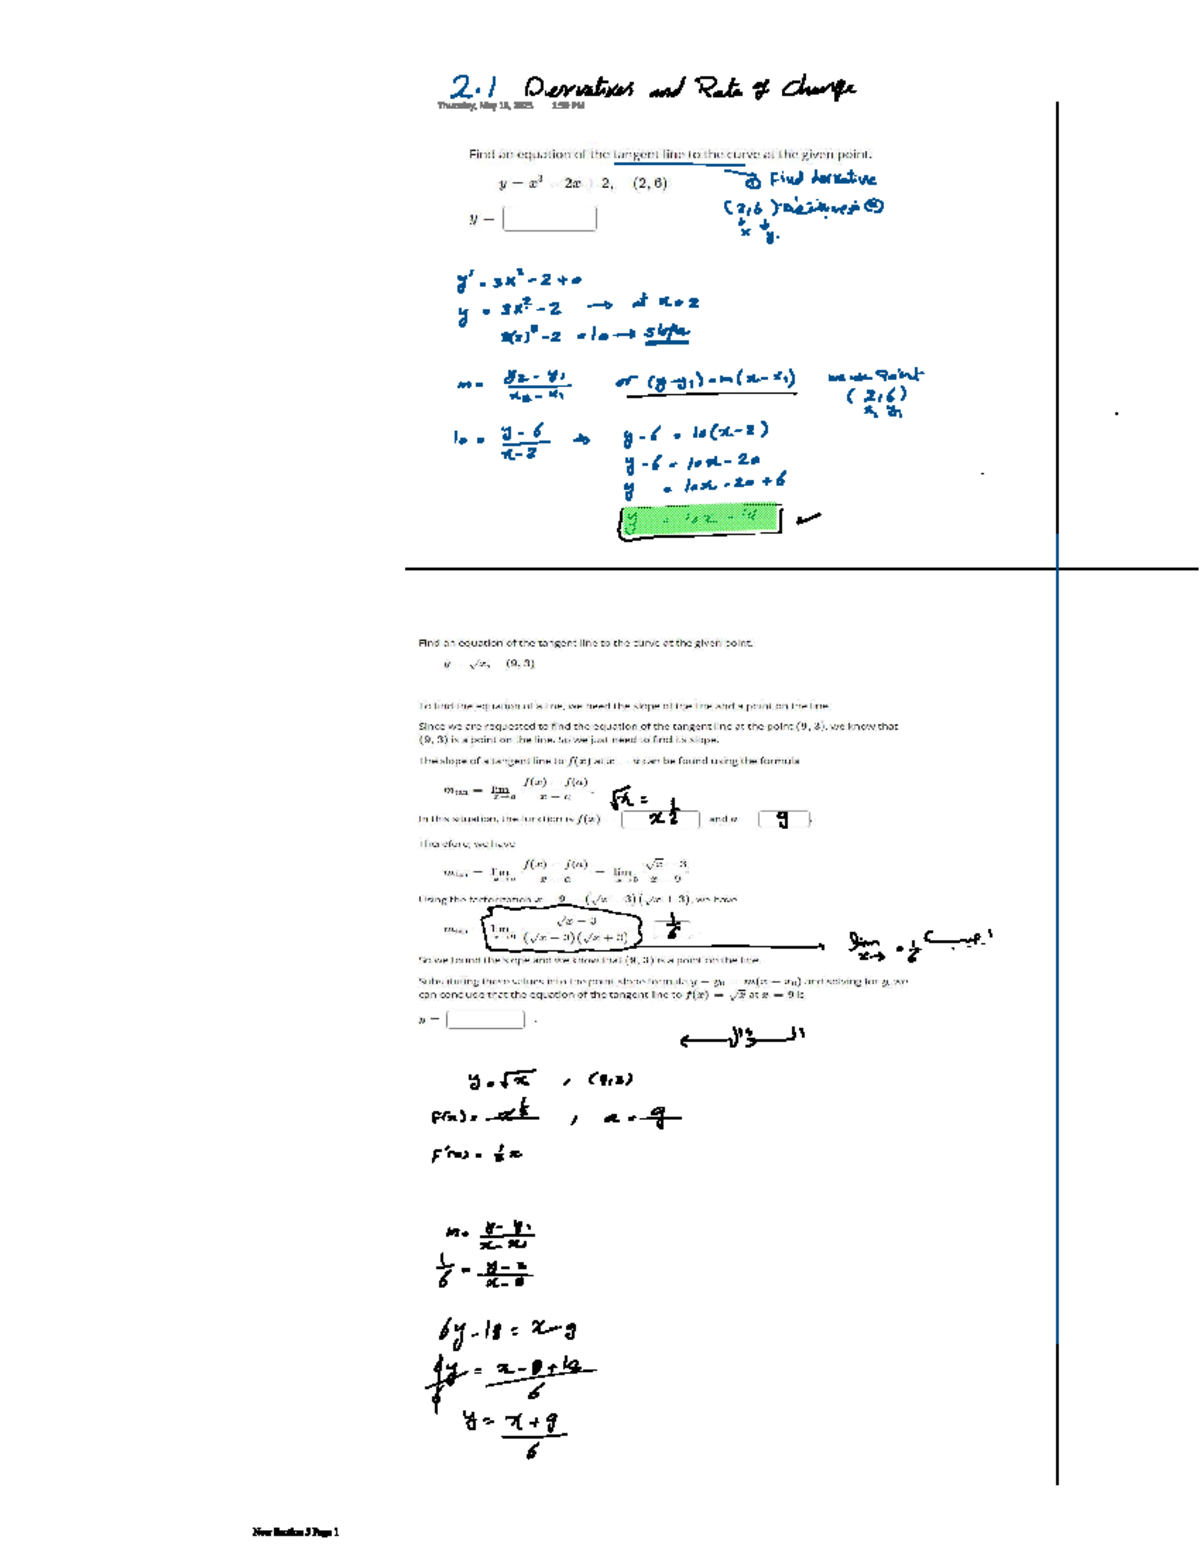 2.1 Derivatives and Rate of Change
Thursday, May 18, 2023 1:59 PM
Find an equation of the tangent line to the curve at the given point.
y = x³ - 2x + 2, (2, 6)
① Find derivative
y =
(2,6)
x y.
y' = 3x² - 2 + 0
y = 3x² - 2 → at x = 2
3(2)² - 2 = 10 → slope
m = (y₂ - y₁)/(x₂ - x₁) or (y-y₁) = m(x-x₁) Point
(2,6)
x₁ y₁
10 = (y - 6)/(x - 2) ⇒ y - 6 = 10(x-2)
y - 6 = 10x - 20
y = 10x - 20 + 6
y = 10x - 14 ✓
Find an equation of the tangent line to the curve at the given point.
y = √x, (9, 3)
To find the equation of a line, we need the slope of the line and a point on the line.
Since we are requested to find the equation of the tangent line at the point (9, 3), we know that
(9, 3) is a point on the line. So we just need to find its slope.
The slope of a tangent line to f(x) at x = a can be found using the formula
m tan = lim x→a (f(x) - f(a))/(x - a).
√x =
In this situation, the function is f(x) = x^½ and a = 9.
Therefore, we have
m tan = lim x→a (f(x) - f(a))/(x - a) = lim x→9 (√x - 3)/(x - 9)
Using the factorization x - 9 = (√x - 3)(√x + 3), we have
m tan = lim x→9 (√x - 3)/((√x - 3)(√x + 3)) = 1/6.
lim x→ = 1/6
So we found the slope and we know that (9, 3) is a point on the line.
Substituting these values into the point slope formula y - y₀ = m(x - x₀) and solving for y, we
can conclude that the equation of the tangent line to f(x) = √x at x = 9 is
y = .
y = √x , (9,3)
F(x) = x^½ , a = 9
F'(x) = ½x
m = (y - y₁)/(x - x₁)
1/6 = (y - 3)/(x - 9)
6y - 18 = x - 9
6y/6 = (x - 9 + 18)/6
y = (x + 9)/6
New Section 3 Page 1